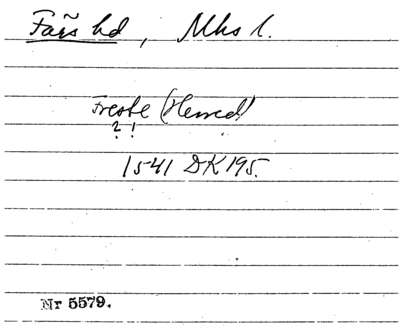 Färs hd, Mhs l.
Freste (Herred)
? !
1541 DK 195.
Nr 5579.